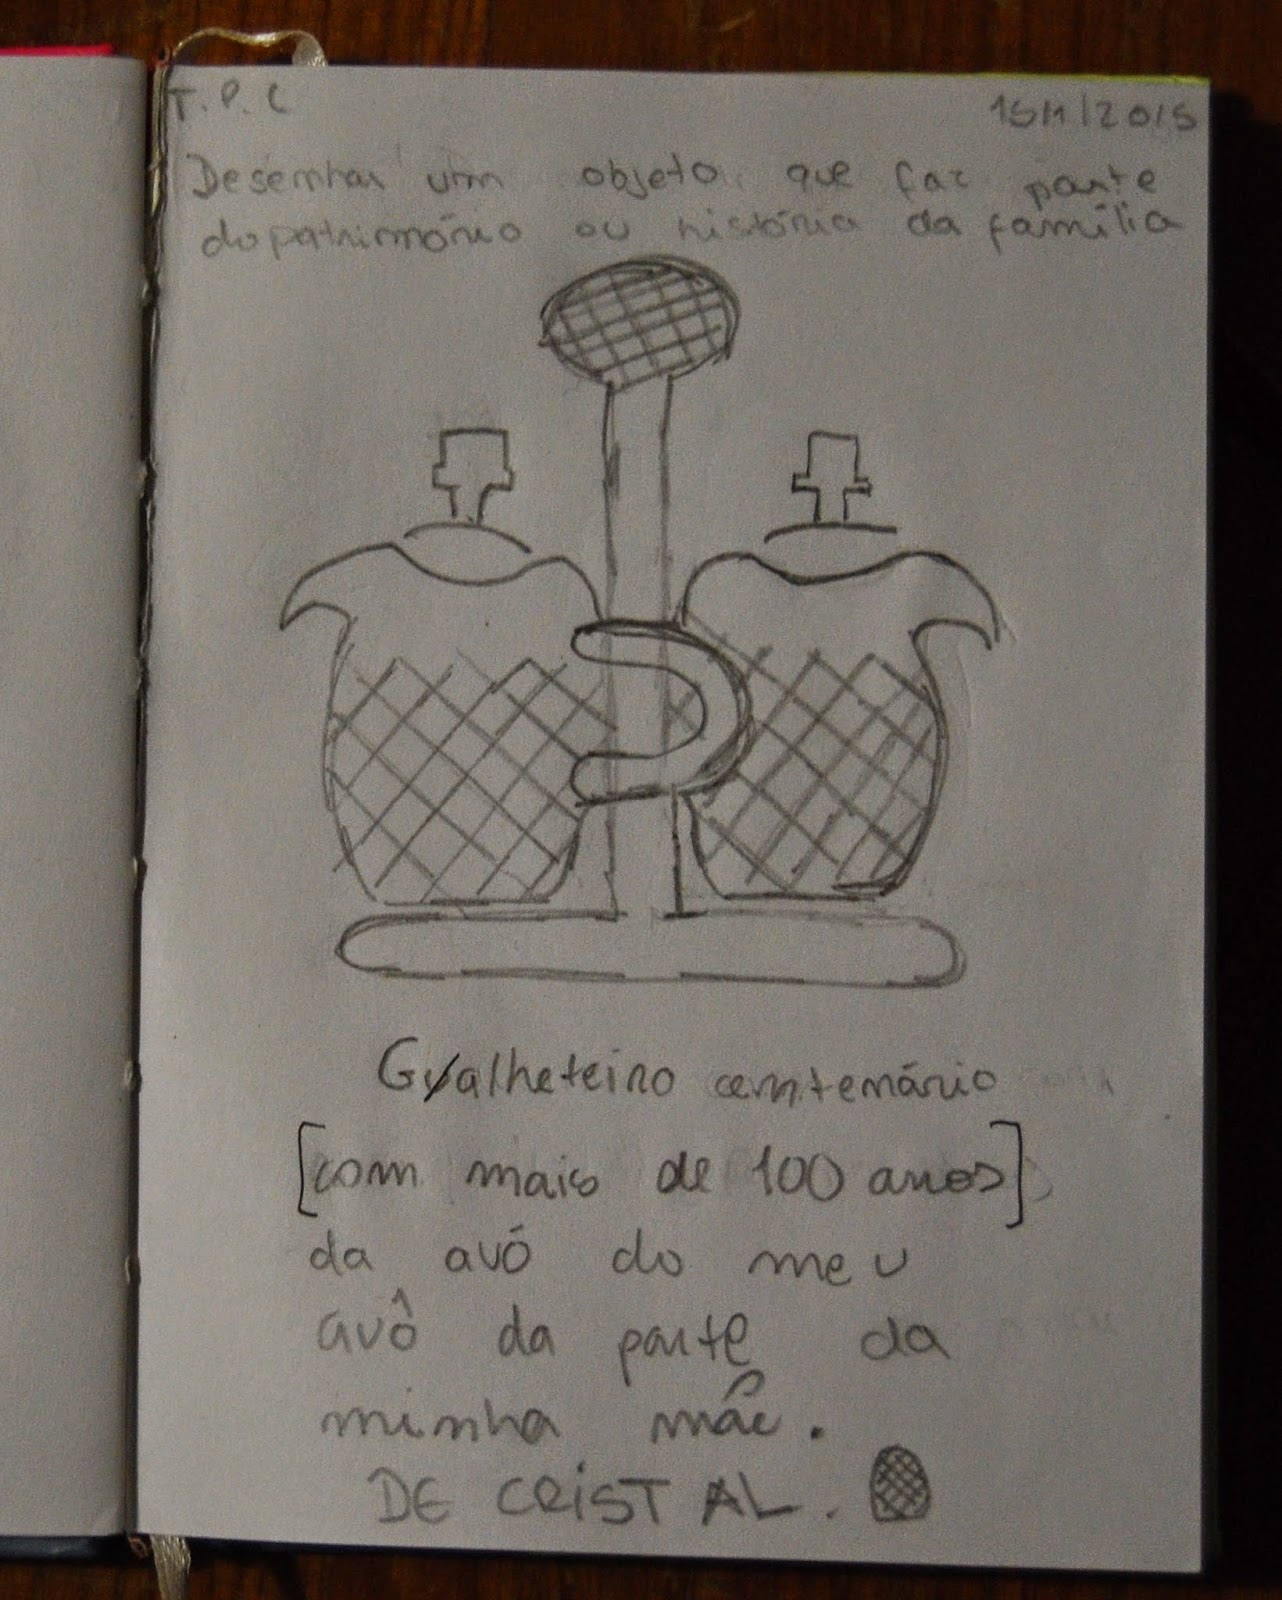 T.P.C
15/1/2015
Desenhar um objeto que faz parte
do património ou história da família
Galheteiro centenário
[com mais de 100 anos]
da avó do meu
avô da parte da
minha mãe.
DE CRISTAL.